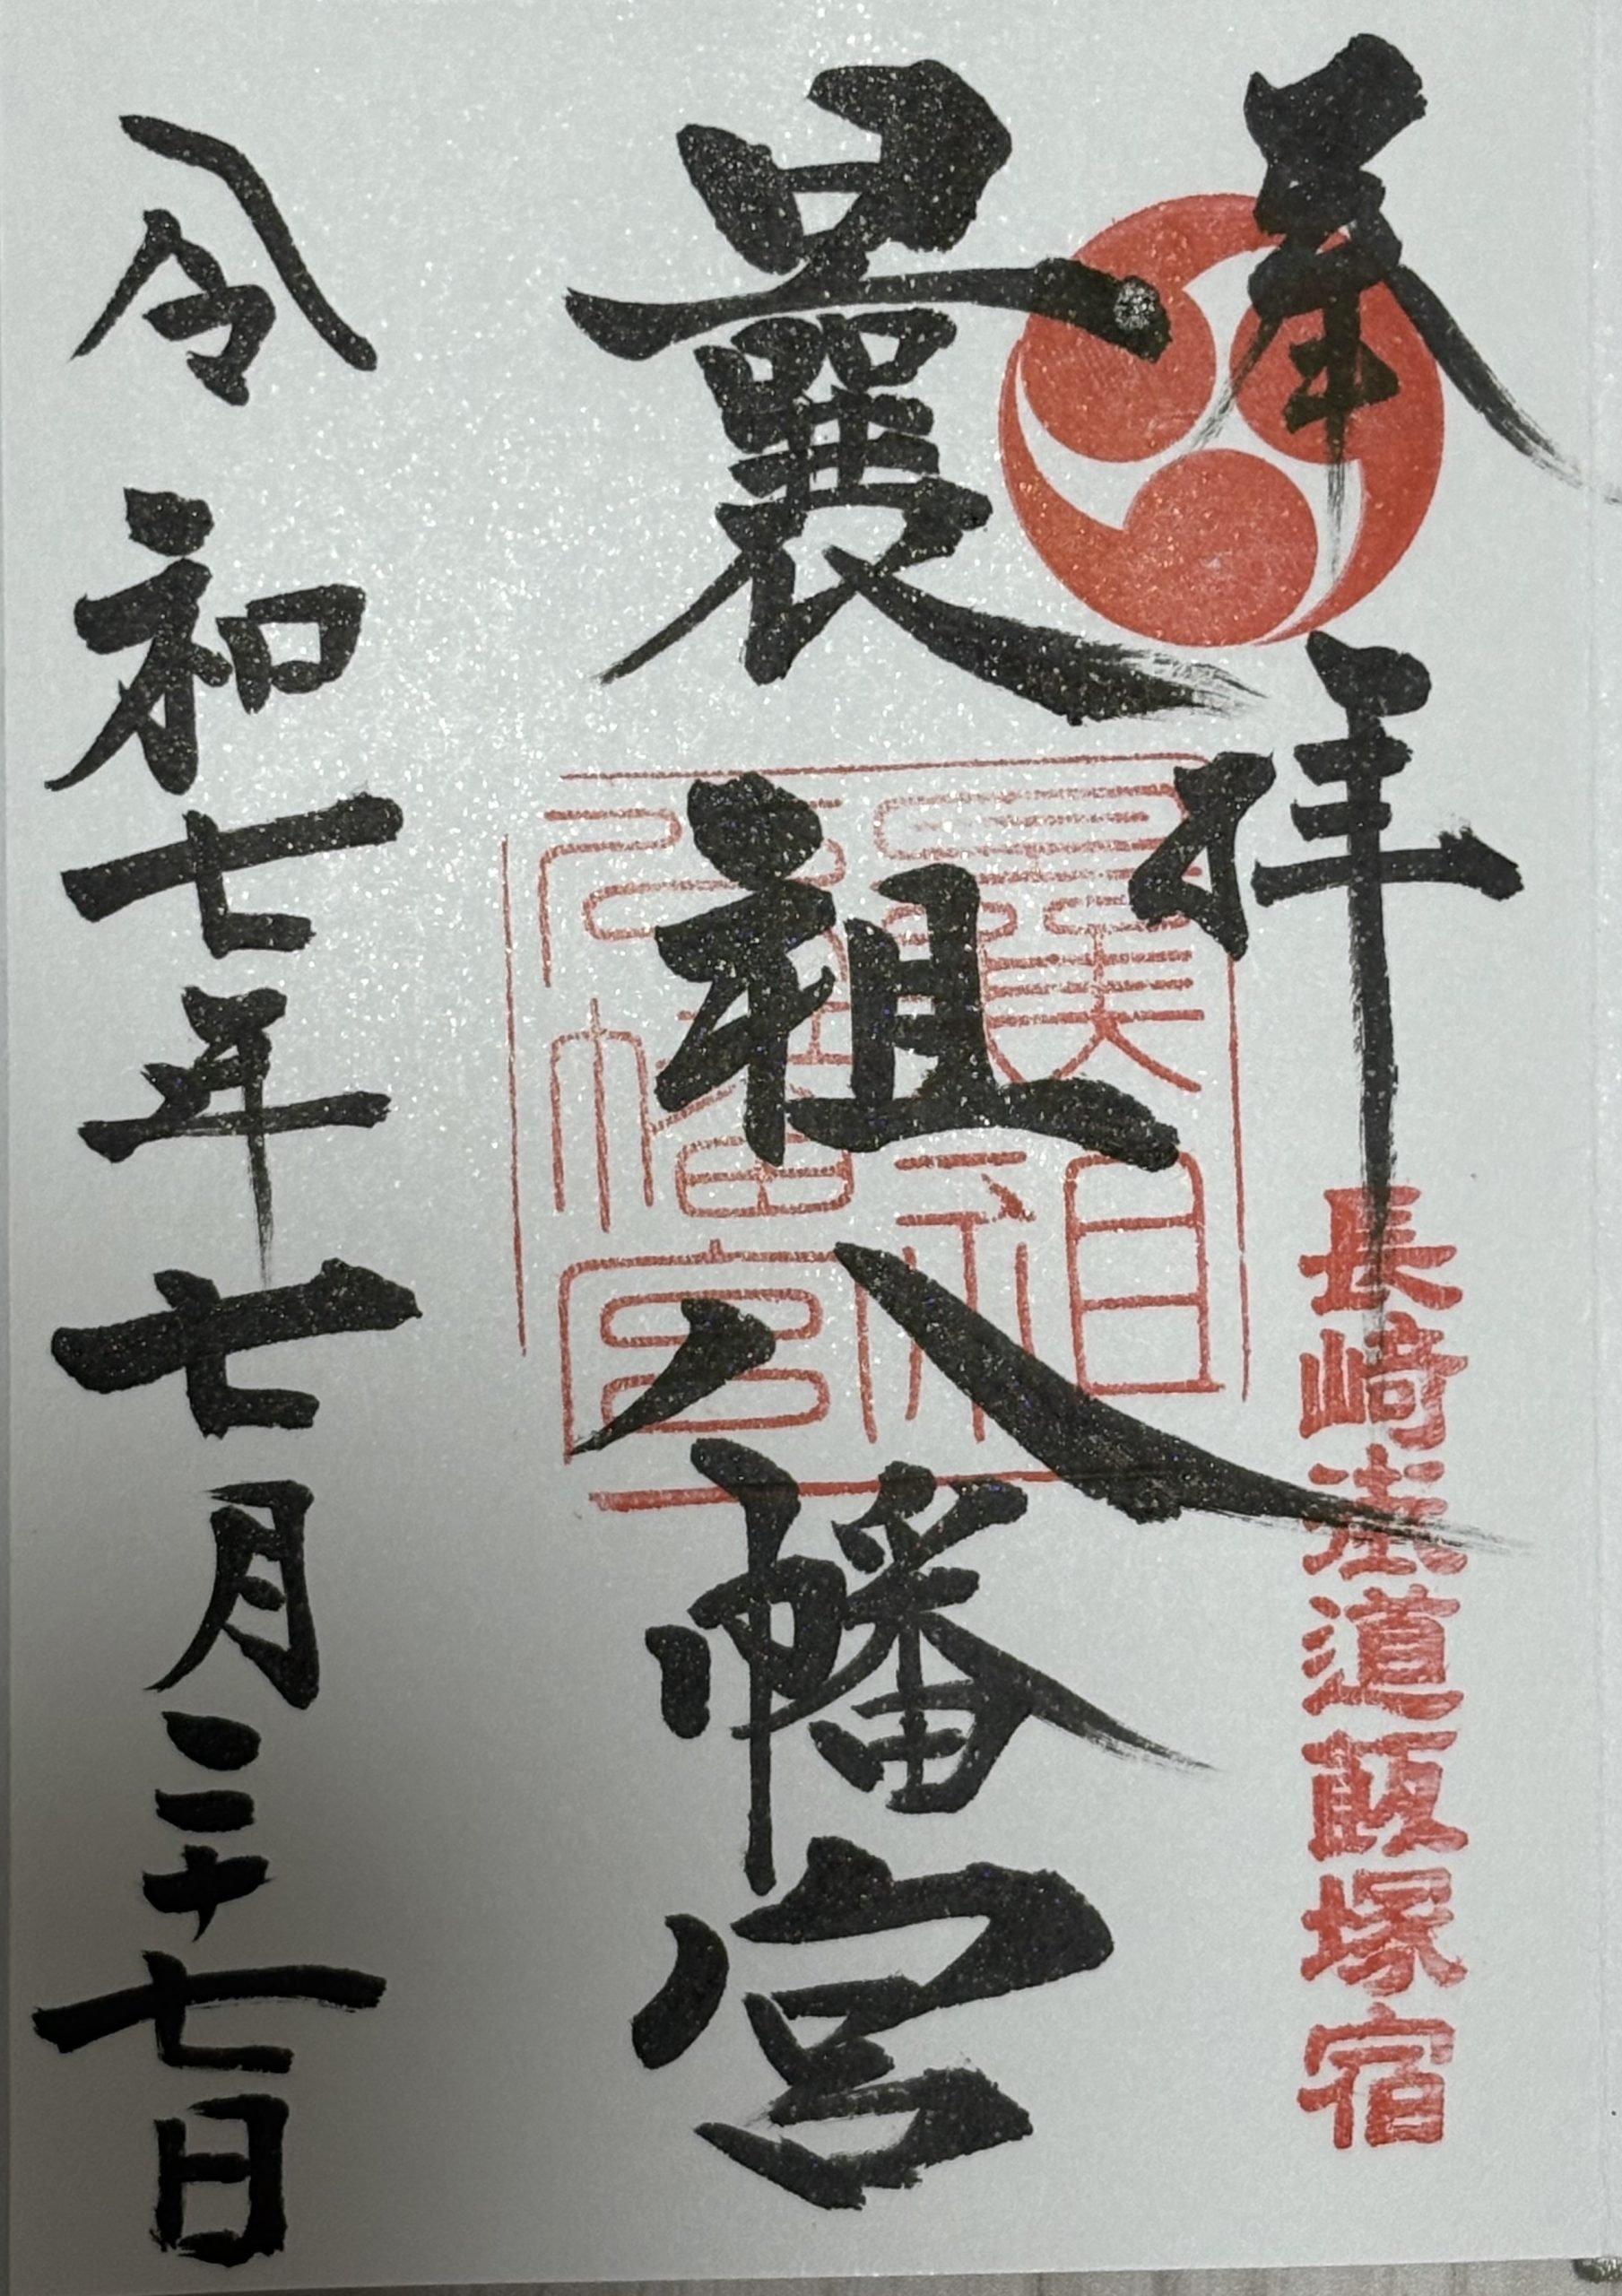 奉拝
長崎街道飯塚宿
曩祖八幡宮
曩祖
八幡宮
令和七年七月二十七日